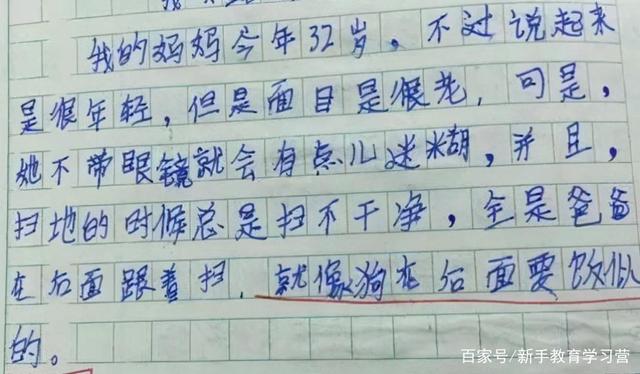 我的妈妈今年32岁，不过说起来
是很年轻，但是面目是很老，可是，
她不带眼镜就会有点儿迷糊，并且，
扫地的时候总是扫不干净，全是爸爸
在后面跟着扫，就像狗在后面要饭似
的。
百家号/新手教育学习营